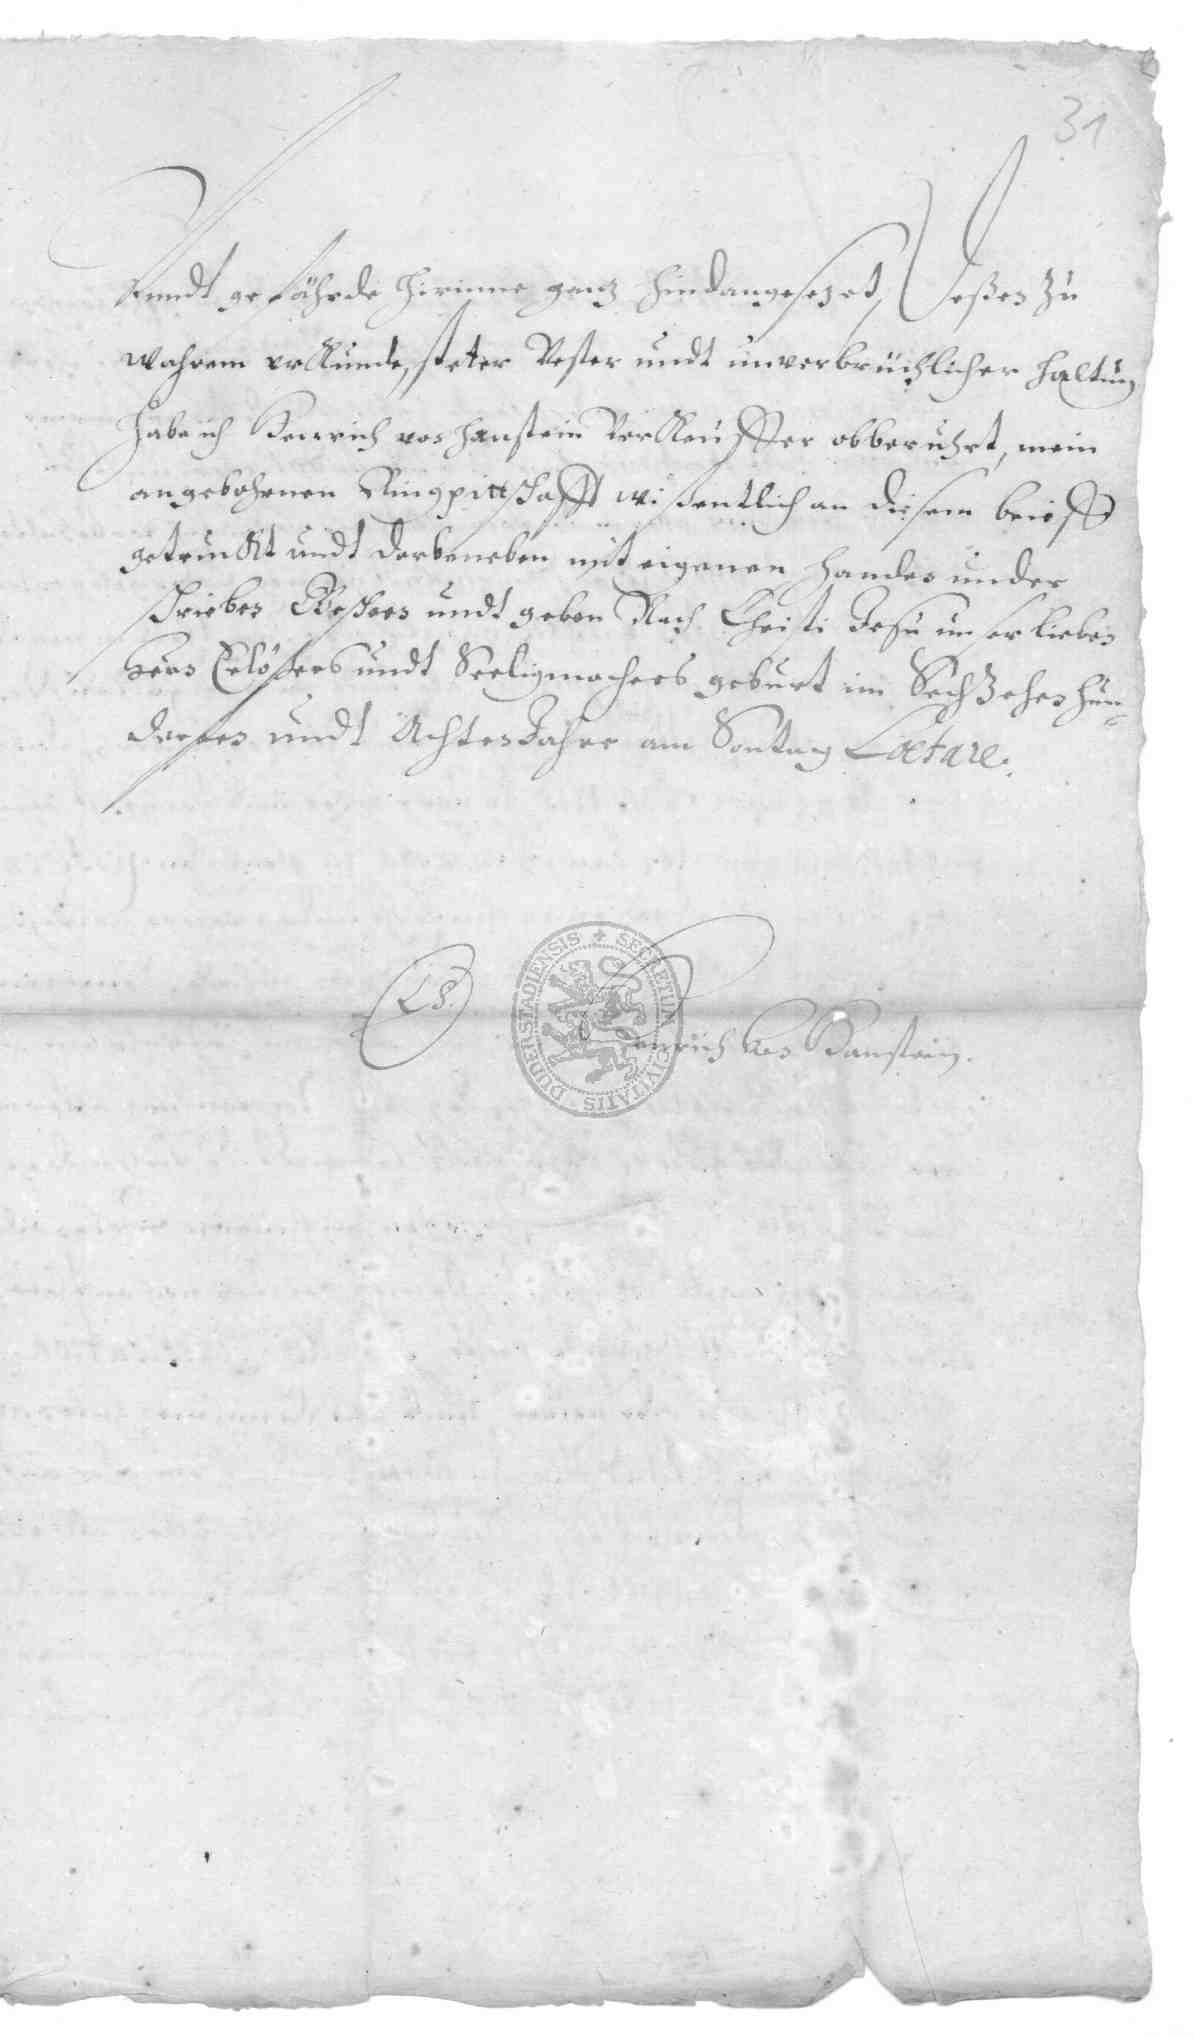 31
undt gefährde hirinne ganz hindangesezet, Deßen zu
wahrem urkunde, steter Vester undt unverbrüchlicher haltung
habe ich Henrich von Hanstein Verkeuffer obberuhrt, mein
angebohrnen Ringpittschafft wissentlich an diesem brieff
getruckt undt darbeneben mit eigenen handen under
schrieben Geschen undt geben Nach Christi Jesu unser lieben
Hern Erlösers undt Seeligmachers geburt im Sechzehenhun-
dersten undt Achten Jahre am Sontag Lætare.
LS.
Henrich von Hanstein.
SECRETUM CIVITATIS DUDERSTADIENSIS